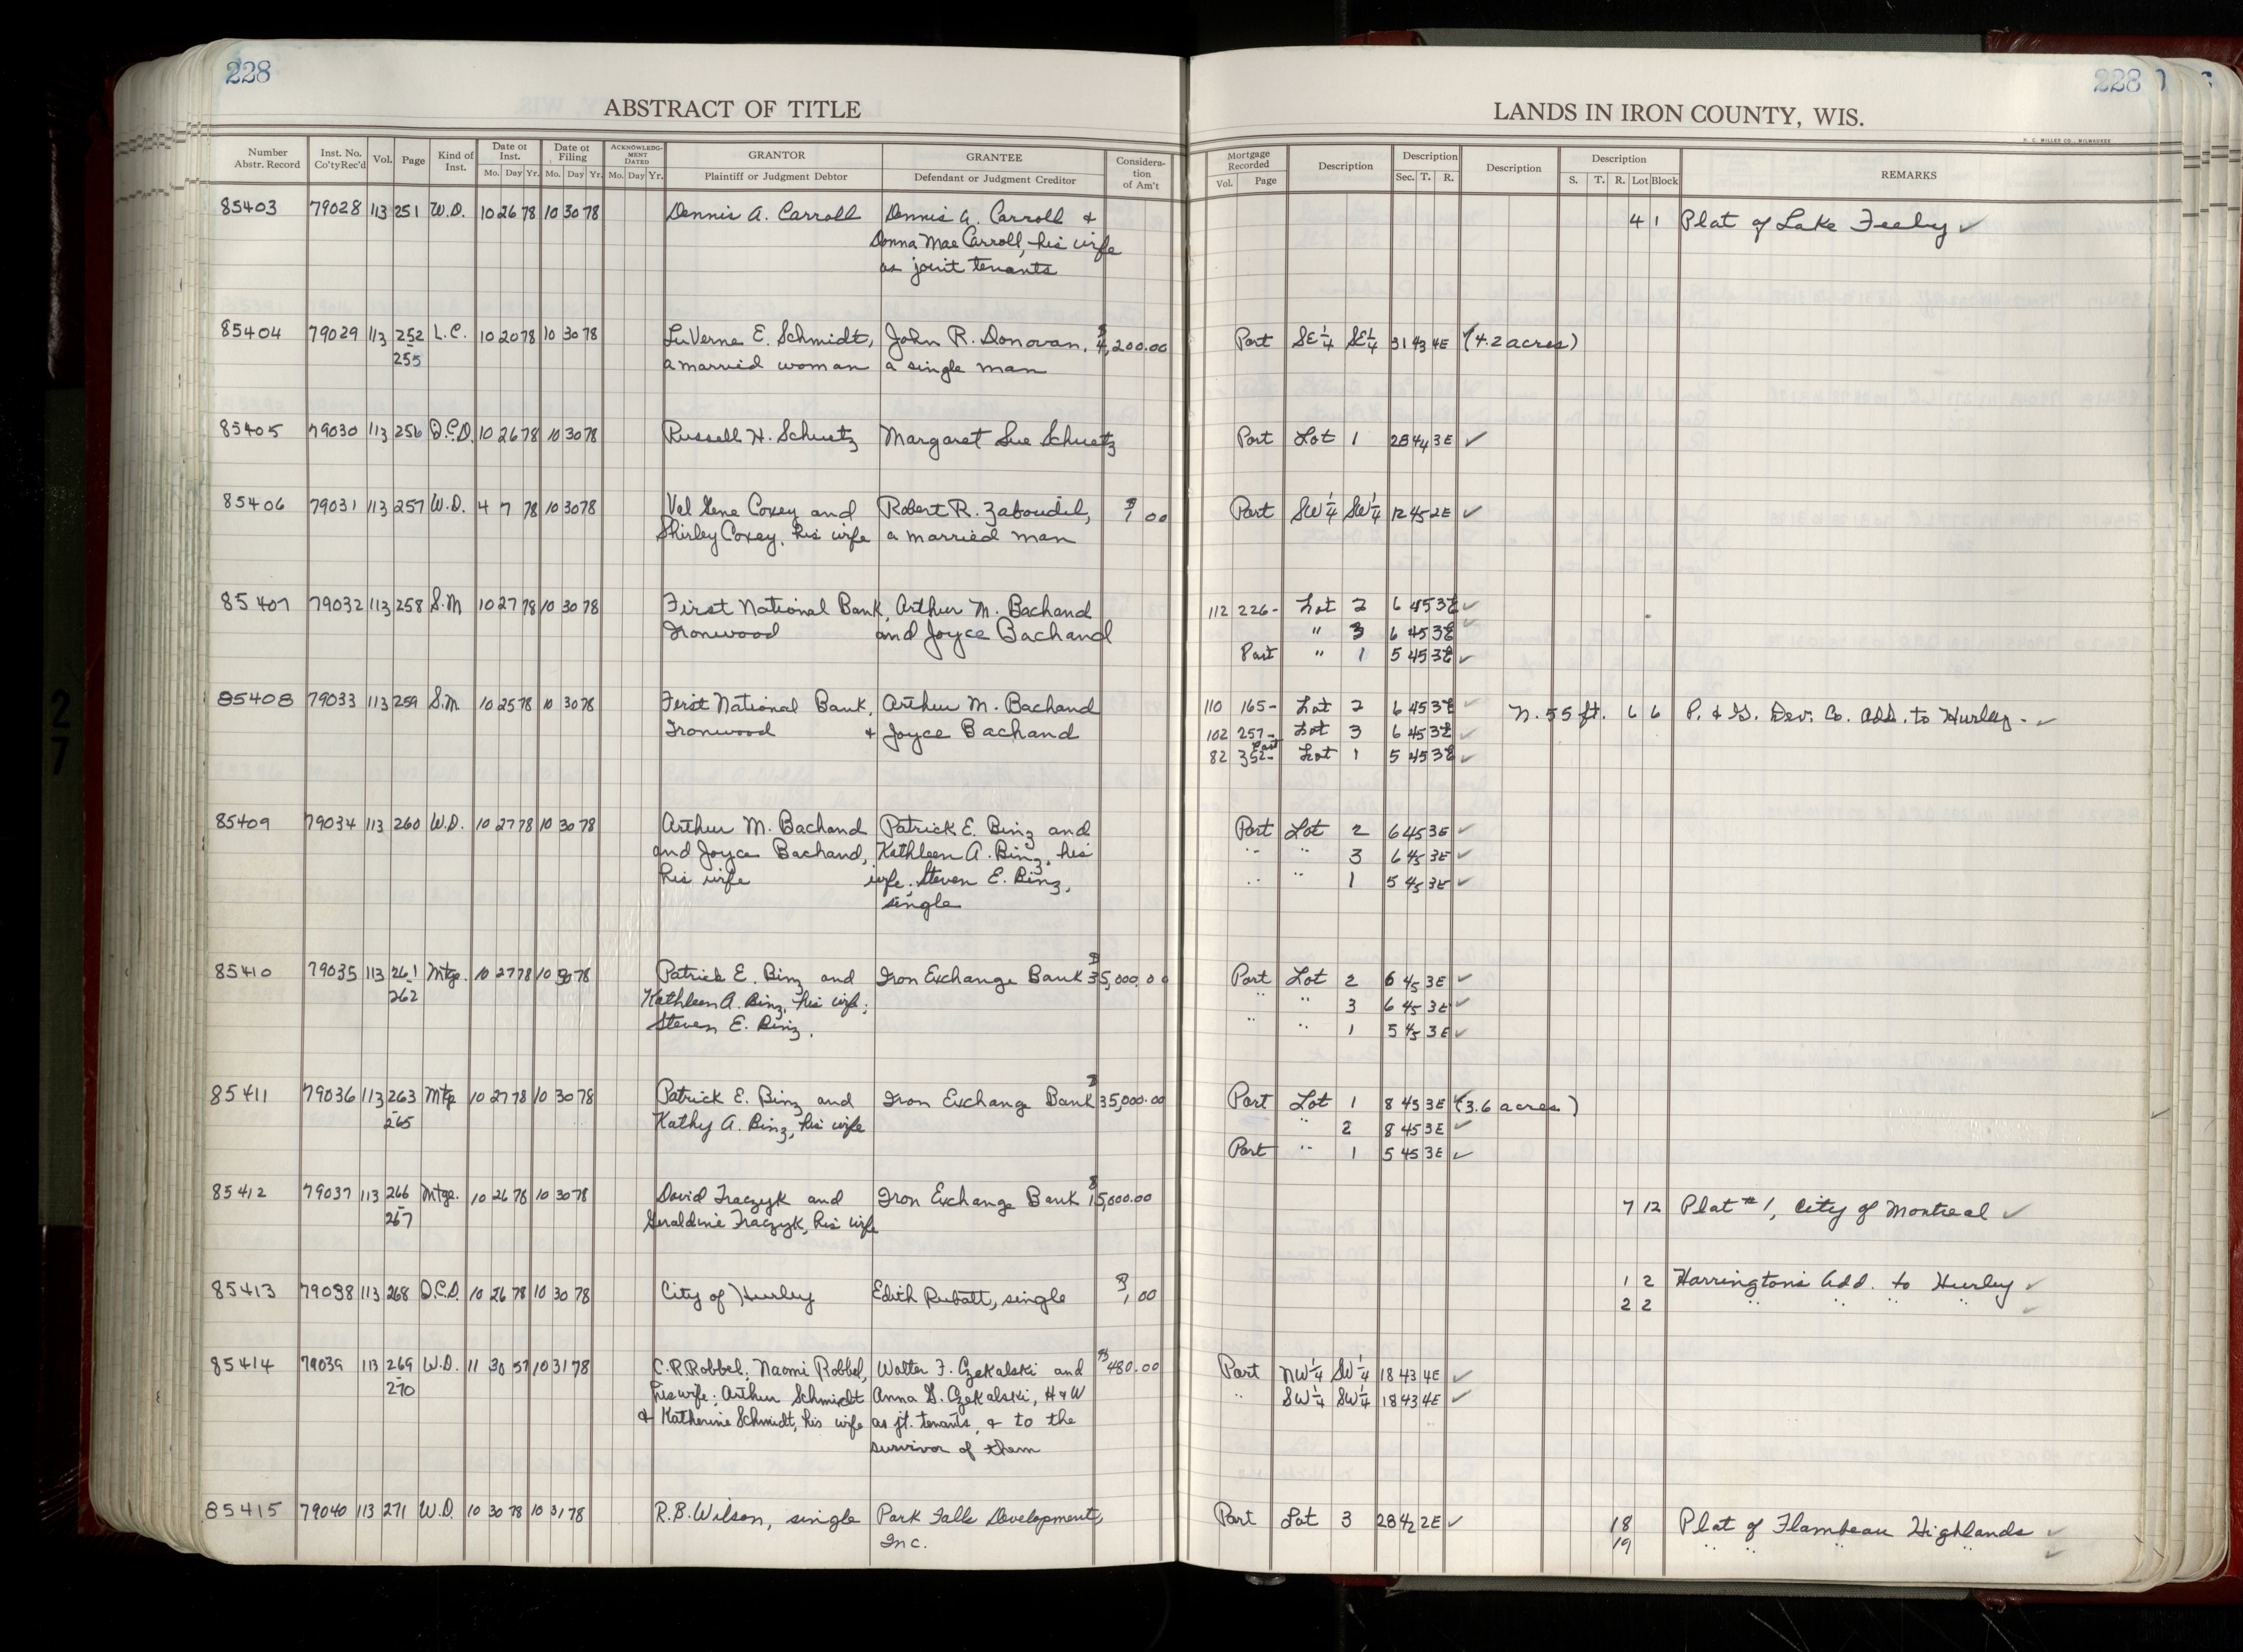 228
228
ABSTRACT OF TITLE
LANDS IN IRON COUNTY, WIS.
H. C. MILLER CO., MILWAUKEE
Number Abstr. Record | Inst. No. Co'tyRec'd | Vol. | Page | Kind of Inst. | Date of Inst. Mo. Day Yr. | Date of Filing Mo. Day Yr. | ACKNOWLEDG-MENT DATED Mo. Day Yr. | GRANTOR Plaintiff or Judgment Debtor | GRANTEE Defendant or Judgment Creditor | Considera-tion of Am't | Mortgage Recorded Vol. Page | Description | Description Sec. T. R. | Description | Description S. T. R. Lot Block | REMARKS
85403 79028 113 251 W.D. 10 26 78 10 30 78 Dennis A. Carroll Dennis A. Carroll & 4 1 Plat of Lake Feeley ✓
Donna Mae Carroll, his wife
as joint tenants
85404 79029 113 252 L.C. 10 20 78 10 30 78 LuVerne E. Schmidt, John R. Donovan, $4,200.00 Part SE¼ SE¼ 31 43 4E (4.2 acres)
- 255 a married woman a single man
85405 79030 113 256 Q.C.D. 10 26 78 10 30 78 Russell H. Schuetz Margaret Sue Schuetz Part Lot 1 28 44 3E ✓
85406 79031 113 257 W.D. 4 7 78 10 30 78 Val Gene Coxey and Robert R. Zaboudil, $1 00 Part SW¼ SW¼ 12 45 2E ✓
Shirley Coxey, his wife a married man
85407 79032 113 258 S.M 10 27 78 10 30 78 First National Bank, Arthur M. Bachand 112 226- Lot 2 6 45 3E ✓
Ironwood and Joyce Bachand " 3 6 45 3E ✓
Part " 1 5 45 3E ✓
85408 79033 113 259 S.M. 10 25 78 10 30 78 First National Bank, Arthur M. Bachand 110 165- Lot 2 6 45 3E ✓ N. 55 ft. 6 6 P. & G. Dev. Co. Add. to Hurley - ✓
Ironwood & Joyce Bachand 102 257- Lot 3 6 45 3E ✓
82 352- Part Lot 1 5 45 3E ✓
85409 79034 113 260 W.D. 10 27 78 10 30 78 Arthur M. Bachand Patrick E. Binz and Part Lot 2 6 45 3E ✓
and Joyce Bachand, Kathleen A. Binz, his " " 3 6 45 3E ✓
his wife wife; Steven E. Binz, " " 1 5 45 3E ✓
single
85410 79035 113 261 Mtge. 10 27 78 10 30 78 Patrick E. Binz and Iron Exchange Bank $35,000.00 Part Lot 2 6 45 3E ✓
- 262 Kathleen A. Binz, his wife; " " 3 6 45 3E ✓
Steven E. Binz. " " 1 5 45 3E ✓
85411 79036 113 263 Mtge 10 27 78 10 30 78 Patrick E. Binz and Iron Exchange Bank $35,000.00 Part Lot 1 8 45 3E (3.6 acres)
- 265 Kathy A. Binz, his wife " 2 8 45 3E ✓
Part " 1 5 45 3E ✓
85412 79037 113 266 Mtge. 10 26 78 10 30 78 David Traczyk and Iron Exchange Bank $15,000.00 7 12 Plat #1, City of Montreal ✓
- 267 Geraldine Traczyk, his wife
85413 79038 113 268 Q.C.D. 10 26 78 10 30 78 City of Hurley Edith Rubatt, single $1,00 1 2 Harrington's Add. to Hurley ✓
2 2 " " " " ✓
85414 79039 113 269 W.D. 11 30 57 10 31 78 C.R. Robbel; Naomi Robbel, Walter F. Czekalski and $480.00 Part NW¼ SW¼ 18 43 4E ✓
- 270 his wife; Arthur Schmidt Anna G. Czekalski, H & W " SW¼ SW¼ 18 43 4E ✓
& Katherine Schmidt, his wife as jt. tenants, & to the
survivor of them
85415 79040 113 271 W.D. 10 30 78 10 31 78 R.B. Wilson, single Park Falls Development, Part Lot 3 28 42 2E ✓ 18 Plat of Flambeau Highlands ✓
Inc. 19 " " " " ✓